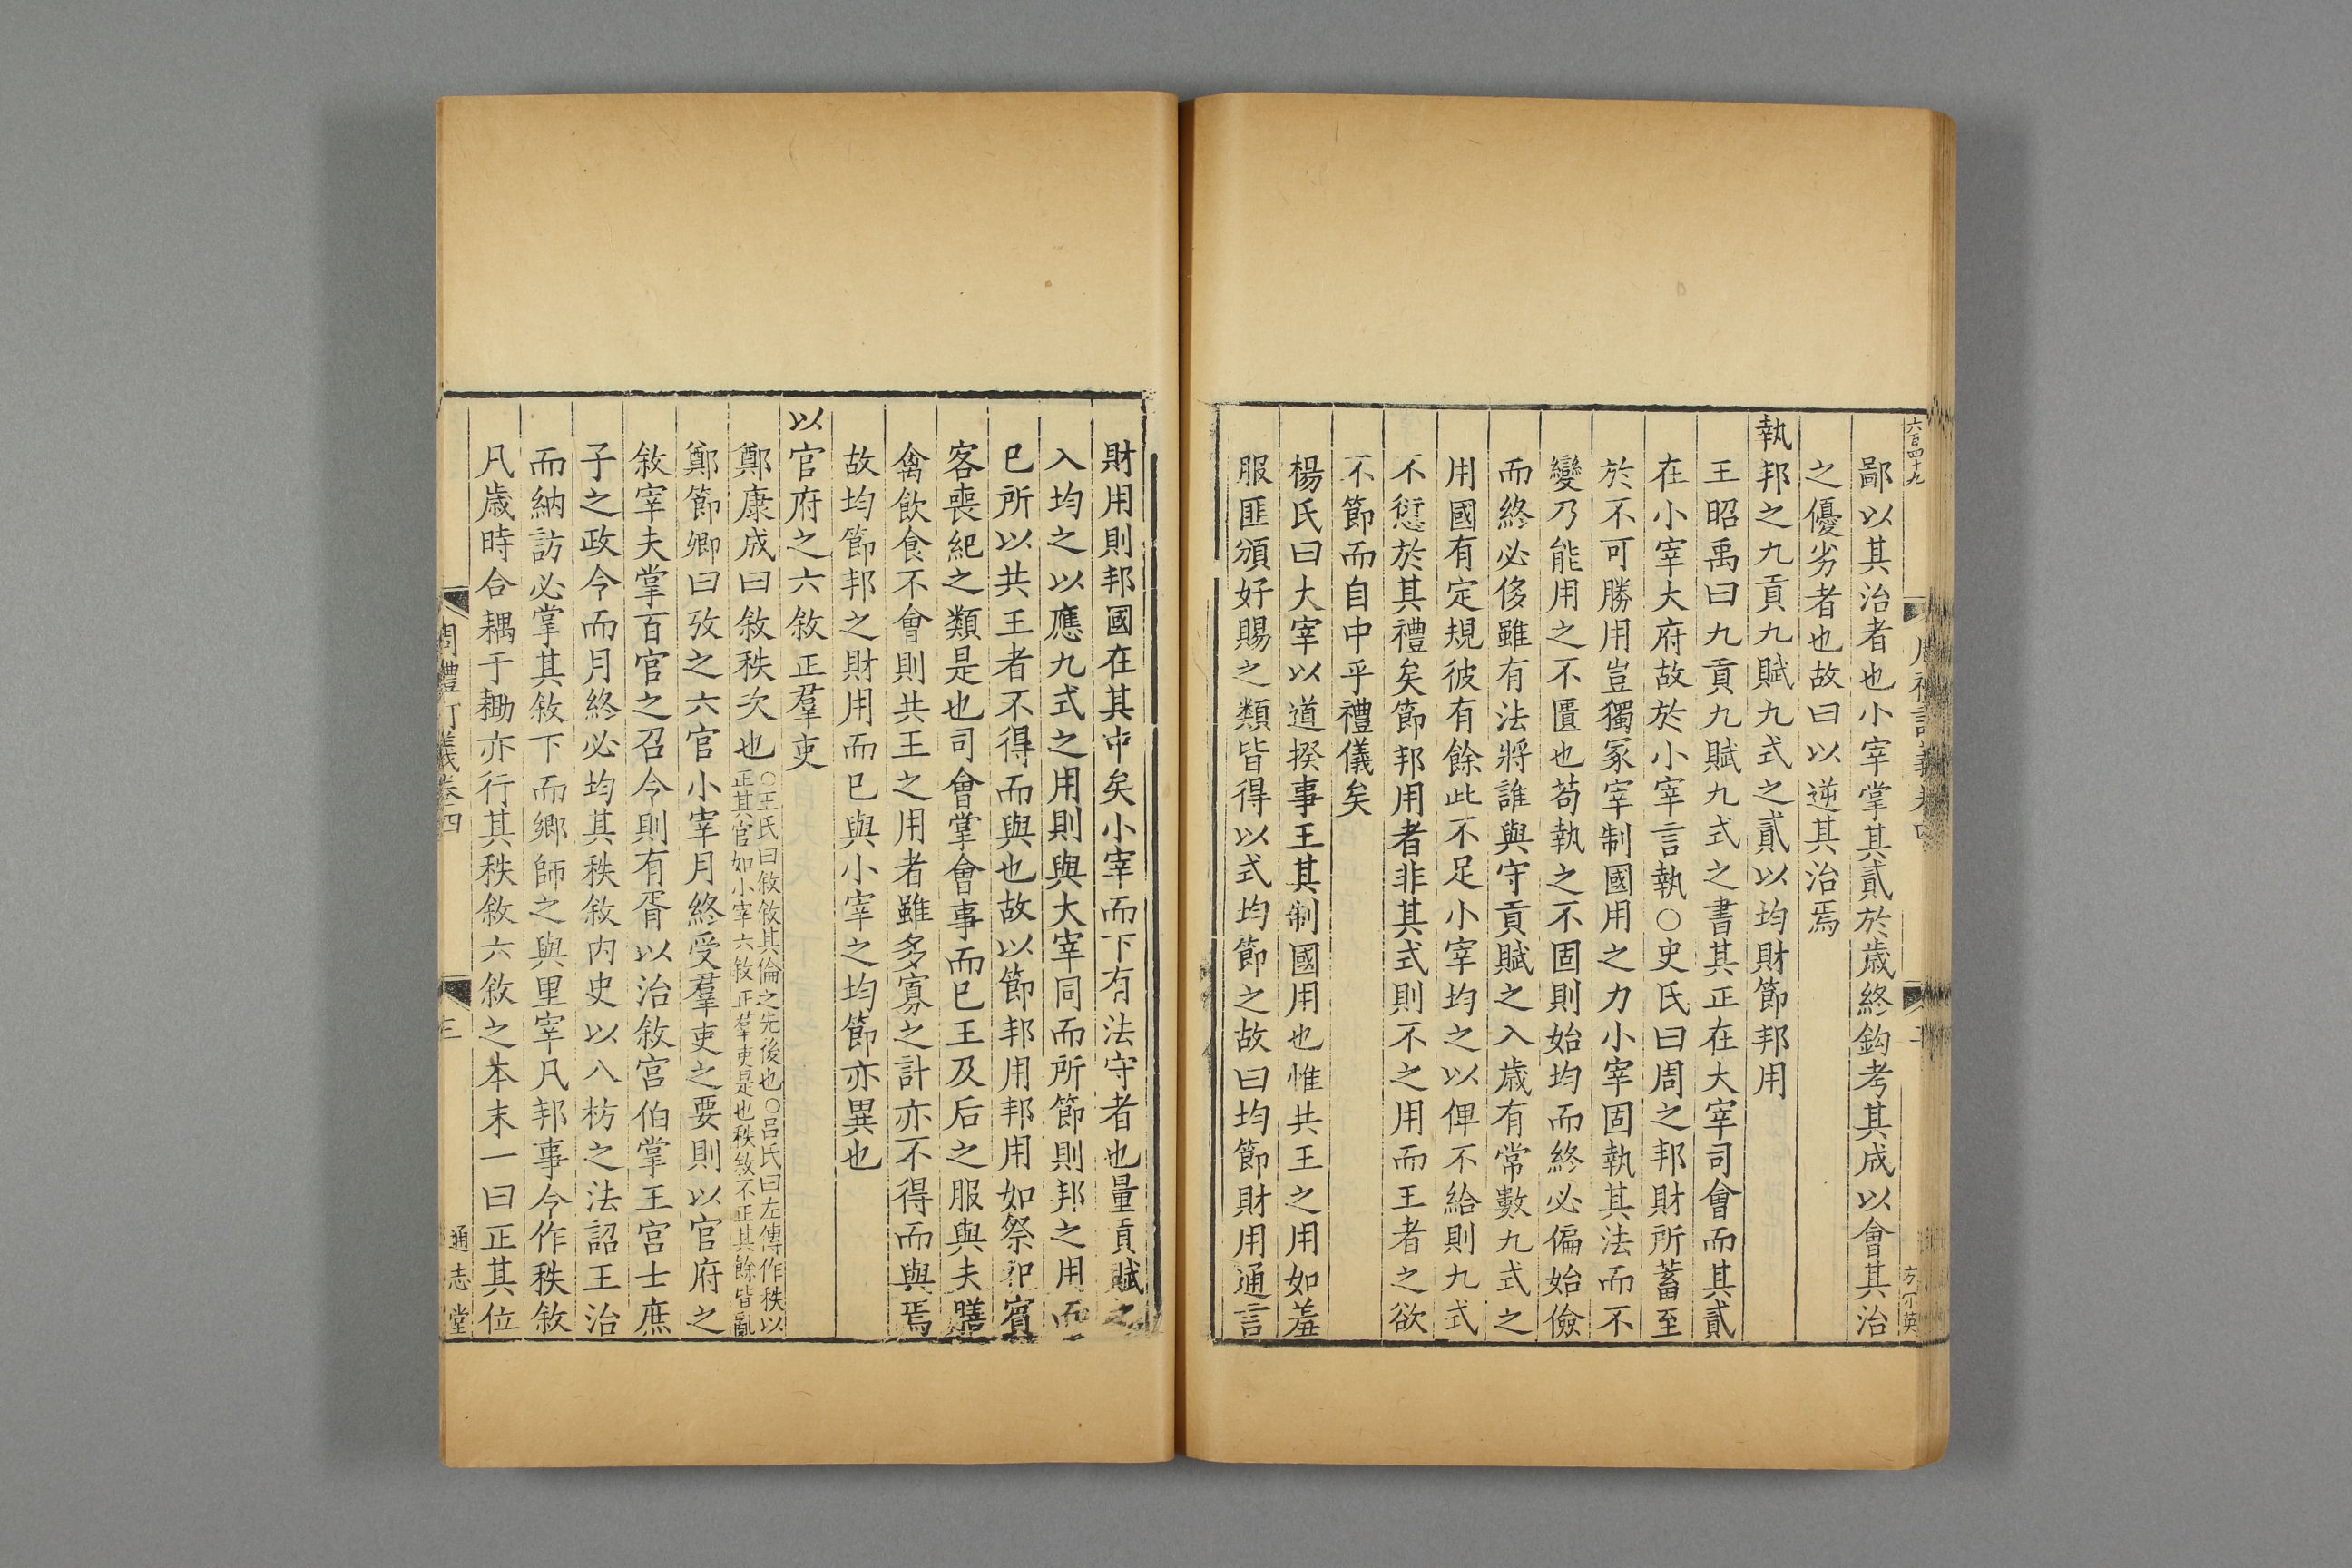 六百四十九
鄙以其治者也小宰掌其貳於歲終鈎考其成以會其治
之優劣者也故曰以逆其治焉
執邦之九貢九賦九式之貳以均財節邦用
王昭禹曰九貢九賦九式之書其正在大宰司會而其貳
在小宰大府故於小宰言執○史氏曰周之邦財所蓄至
於不可勝用豈獨冢宰制國用之力小宰固執其法而不
變乃能用之不匱也苟執之不固則始均而終必偏始儉
而終必侈雖有法將誰與守貢賦之入歲有常數九式之
用國有定規彼有餘此不足小宰均之以俾不給則九式
不愆於其禮矣節邦用者非其式則不之用而王者之欲
不節而自中乎禮儀矣
楊氏曰大宰以道揆事王其制國用也惟共王之用如羞
服匪頒好賜之類皆得以式均節之故曰均節財用通言
財用則邦國在其中矣小宰而下有法守者也量貢賦之
入均之以應九式之用則與大宰同而所節則邦之用而
已所以共王者不得而與也故以節邦用邦用如祭祀賓
客喪紀之類是也司會掌會事而已王及后之服與夫膳
禽飲食不會則共王之用者雖多寡之計亦不得而與焉
故均節邦之財用而已與小宰之均節亦異也
以官府之六敘正羣吏
鄭康成曰敘秩次也○王氏曰敘敘其倫之先後也○呂氏曰左傳作秩以
正其官如小宰六敘正羣吏是也秩敘不正其餘皆亂
鄭節卿曰攷之六官小宰月終受羣吏之要則以官府之
敘宰夫掌百官之召令則有胥以治敘宮伯掌王宮士庶
子之政令而月終必均其秩敘内史以八枋之法詔王治
而納訪必掌其敘下而鄉師之與里宰凡邦事令作秩敘
凡歲時合耦于耡亦行其秩敘六敘之本末一曰正其位
周禮訂義卷四
三
通志堂